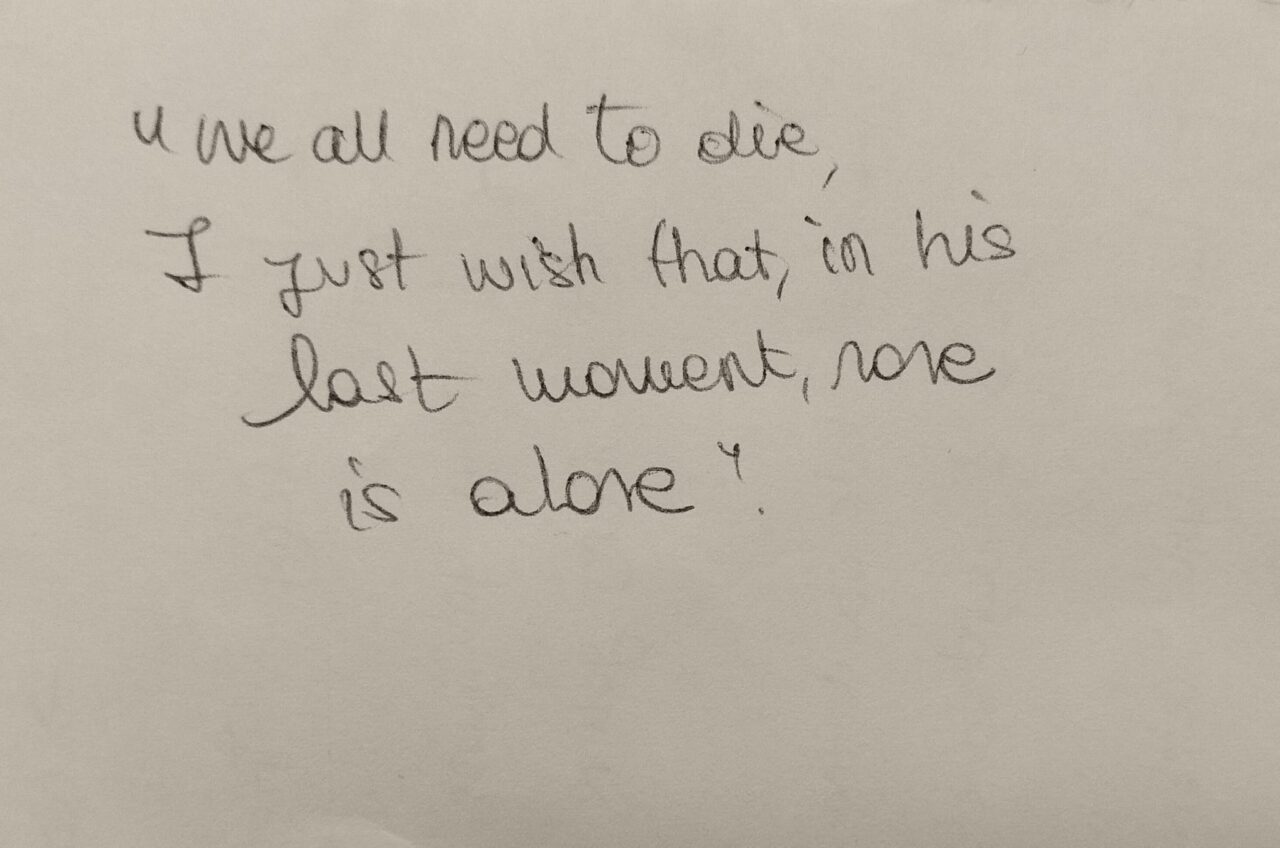 "we all need to die,
I just wish that, in his
last moment, none
is alone".